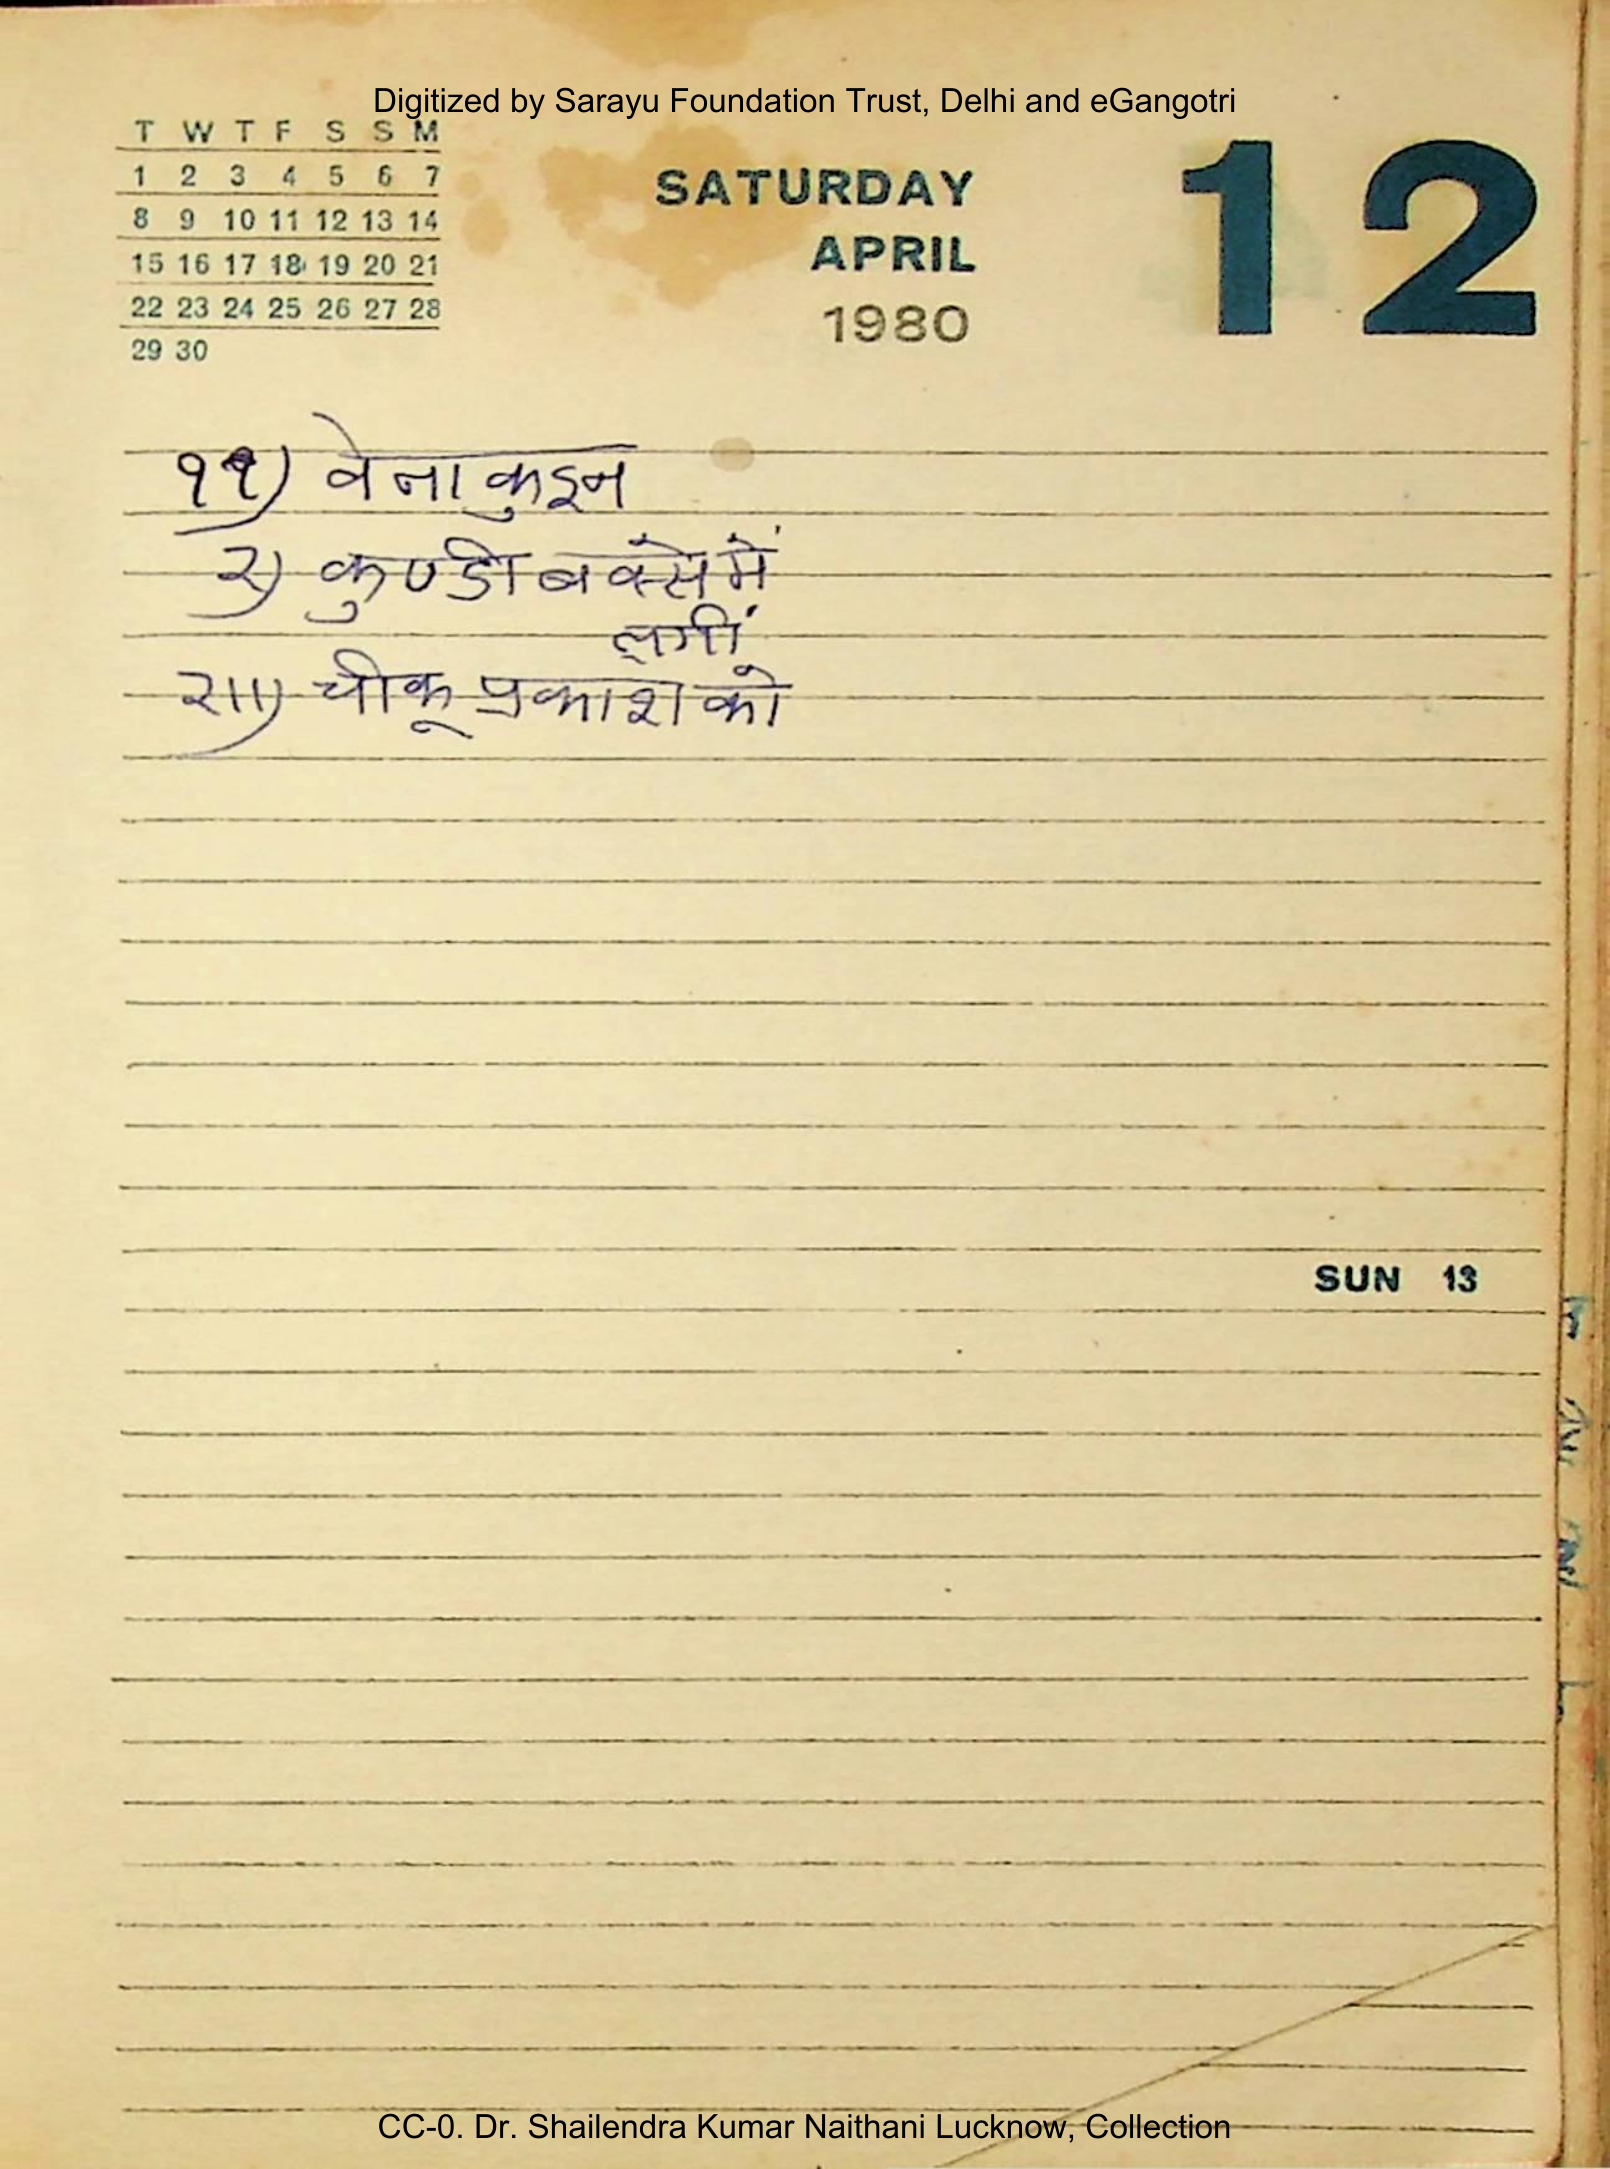 Digitized by Sarayu Foundation Trust, Delhi and eGangotri
T W T F S S M
1 2 3 4 5 6 7
8 9 10 11 12 13 14
15 16 17 18 19 20 21
22 23 24 25 26 27 28
29 30
SATURDAY
APRIL
1980
12
११) वेनाकुइन
२) कुण्डी बक्से में
लगीं
२॥) चीकू प्रकाश को
SUN 13
CC-0. Dr. Shailendra Kumar Naithani Lucknow, Collection